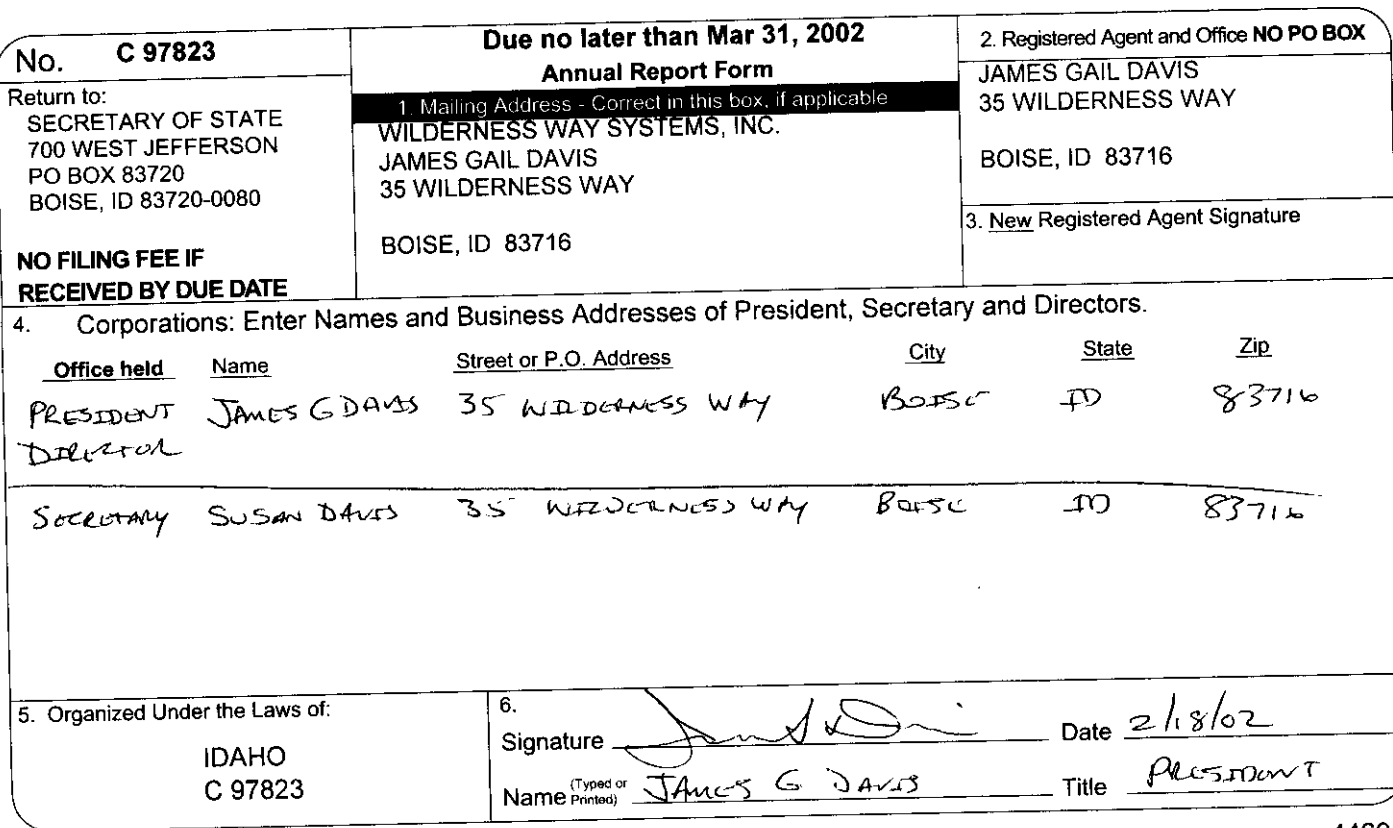 No. C 97823
Return to:
SECRETARY OF STATE
700 WEST JEFFERSON
PO BOX 83720
BOISE, ID 83720-0080
NO FILING FEE IF
RECEIVED BY DUE DATE
Due no later than Mar 31, 2002
Annual Report Form
1. Mailing Address - Correct in this box, if applicable
WILDERNESS WAY SYSTEMS, INC.
JAMES GAIL DAVIS
35 WILDERNESS WAY
BOISE, ID 83716
2. Registered Agent and Office NO PO BOX
JAMES GAIL DAVIS
35 WILDERNESS WAY
BOISE, ID 83716
3. New Registered Agent Signature
4. Corporations: Enter Names and Business Addresses of President, Secretary and Directors.
Office held Name Street or P.O. Address City State Zip
PRESIDENT JAMES G DAVIS 35 WILDERNESS WAY BOISE ID 83716
DIRECTOR
SECRETARY SUSAN DAVIS 35 WILDERNESS WAY BOISE ID 83716
5. Organized Under the Laws of:
IDAHO
C 97823
6.
Signature Date 2/18/02
Name (Typed or Printed) JAMES G DAVIS Title PRESIDENT